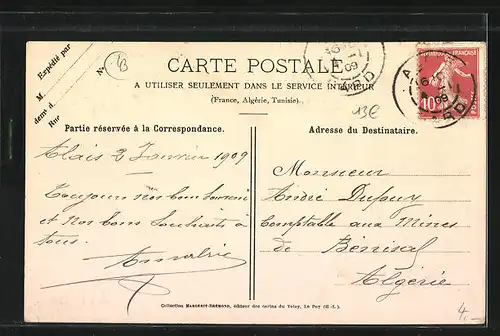 Expédié par
M.
dem t d.
Rue
N°
B
CARTE POSTALE
A UTILISER SEULEMENT DANS LE SERVICE INTÉRIEUR
(France, Algérie, Tunisie).
13€
Partie réservée à la Correspondance.
Alais 3 Janvier 1909
Toujours nos bons
et nos bons souhaits à
tous.
Adresse du Destinataire.
Monsieur
André Dupuy
Comptable aux Mines
de Bénisaf
Algérie
10
09
GARD
Collection MARGERIT-BRÉMOND, éditeur des cartes du Velay, Le Puy (H.-L.)
4.-